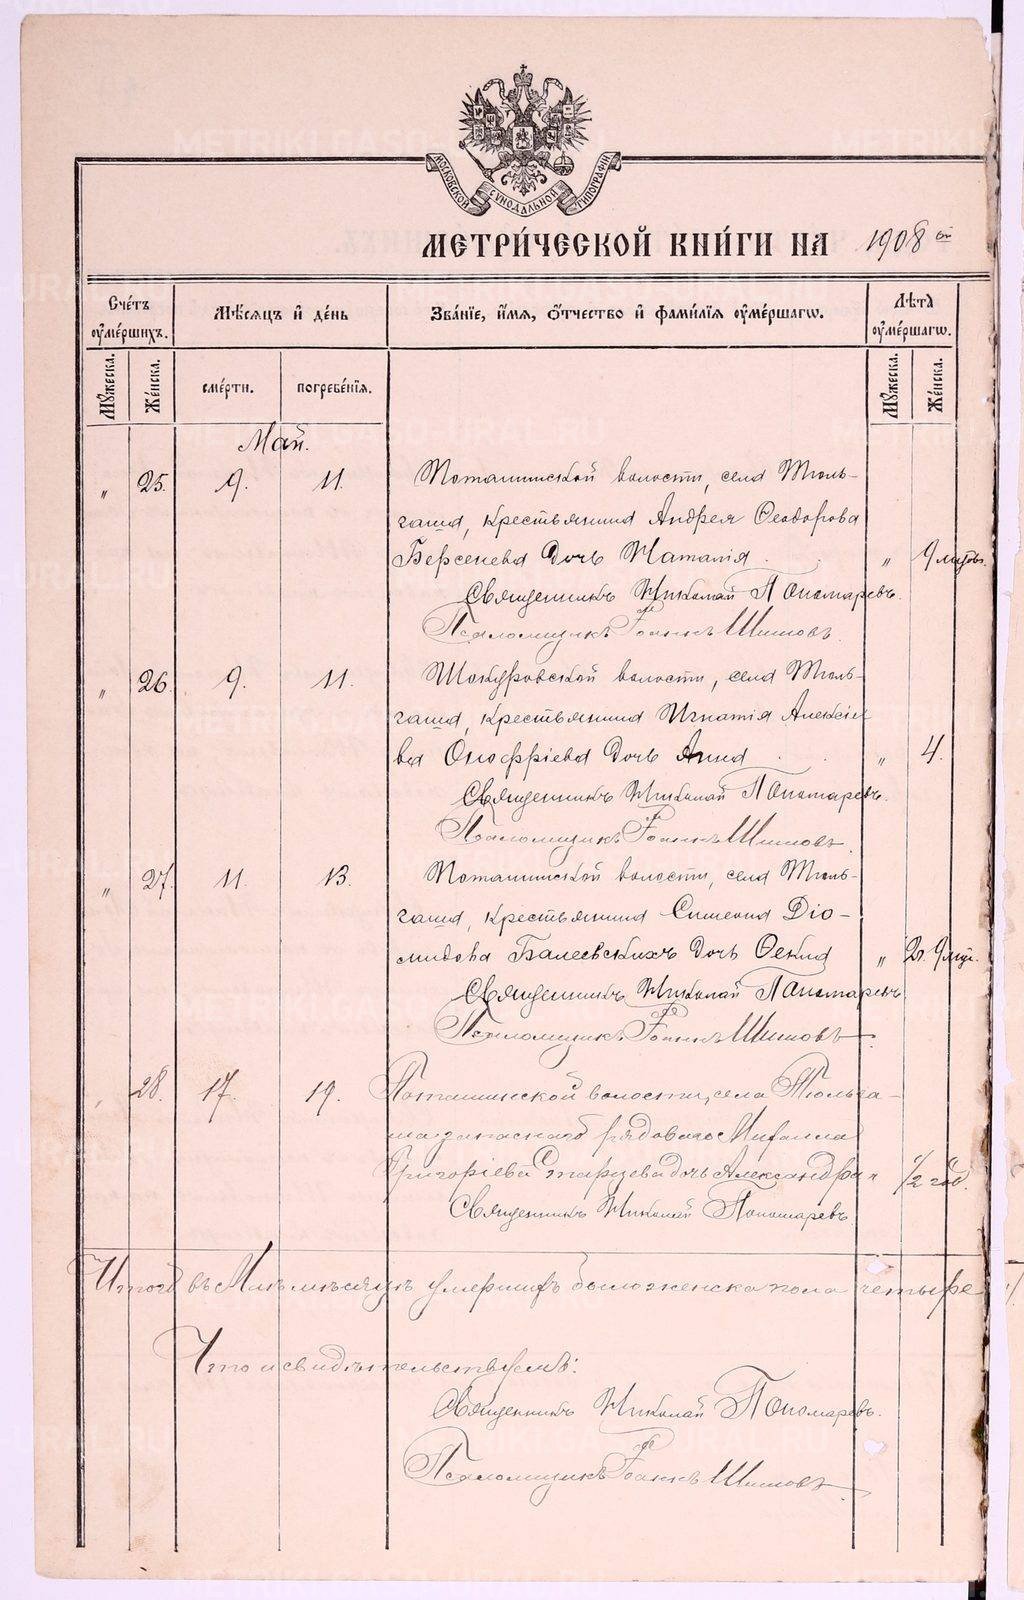 МОСКОВСКОЙ СѴНОДАЛЬНОЙ ТИПОГРАФІИ
МЕТРИ́ЧЕСКОЙ КНИ́ГИ НА 1908 ой
Сче́тъ оумершихъ.
Мѣсяцъ и де́нь
Зва́нїе, и́мя, ѻ́тчество и фами́лїя оумершагѡ.
Лѣта оумершагѡ.
Мꙋ́жеска.
Же́нска.
сме́рти.
погребе́нїя.
Мꙋ́жеска.
Же́нска.
Май.
" 25. 9. 11. Поташинской волости, села Тюль-
гаша, крестьянина Андрея Ѳеодорова
Берсенева дочь Наталія " 9 мѣсяц.
Священникъ Николай Пономаревъ.
Псаломщикъ Іоаннъ Шишовъ.
" 26. 9. 11. Шокуровской волости, села Тюль-
гаша, крестьянина Игнатія Алексѣе
ва Оноффріева дочь Анна " 4.
Священникъ Николай Пономаревъ.
Псаломщикъ Іоаннъ Шишовъ.
" 27. 11. 13. Поташинской волости, села Тюль-
гаша, крестьянина Симеона Діо-
мидова Балеевскихъ дочь Ѳекла " 2г. 9 мѣс.
Священникъ Николай Пономаревъ
Псаломщикъ Іоаннъ Шишовъ
28. 17. 19. Поташинской волости, села Тюльга-
ша запаснаго рядоваго Михаила
Григоріева Старцева дочь Александра " 1/2 год.
Священникъ Николай Пономаревъ.
Итого въ Маѣ мѣсяцѣ умершихъ было женска пола четыре
Что и свидѣтельствуемъ:
Священникъ Николай Пономаревъ.
Псаломщикъ Іоаннъ Шишовъ